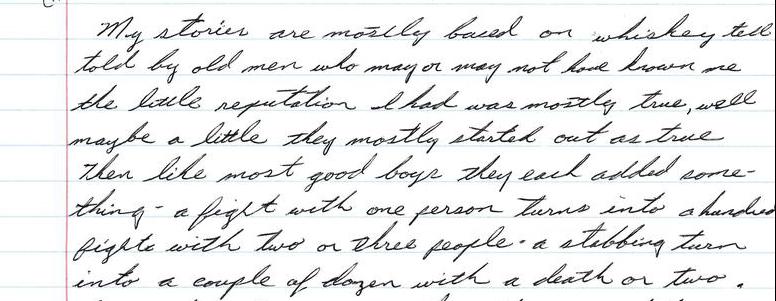 My stories are mostly based on whiskey tell
told by old men who may or may not have known me
the little reputation I had was mostly true, well
maybe a little they mostly started out as true
Then like most good boys they each added some-
thing - a fight with one person turns into a hundred
fights with two or three people - a stabbing turn
into a couple of dozen with a death or two.